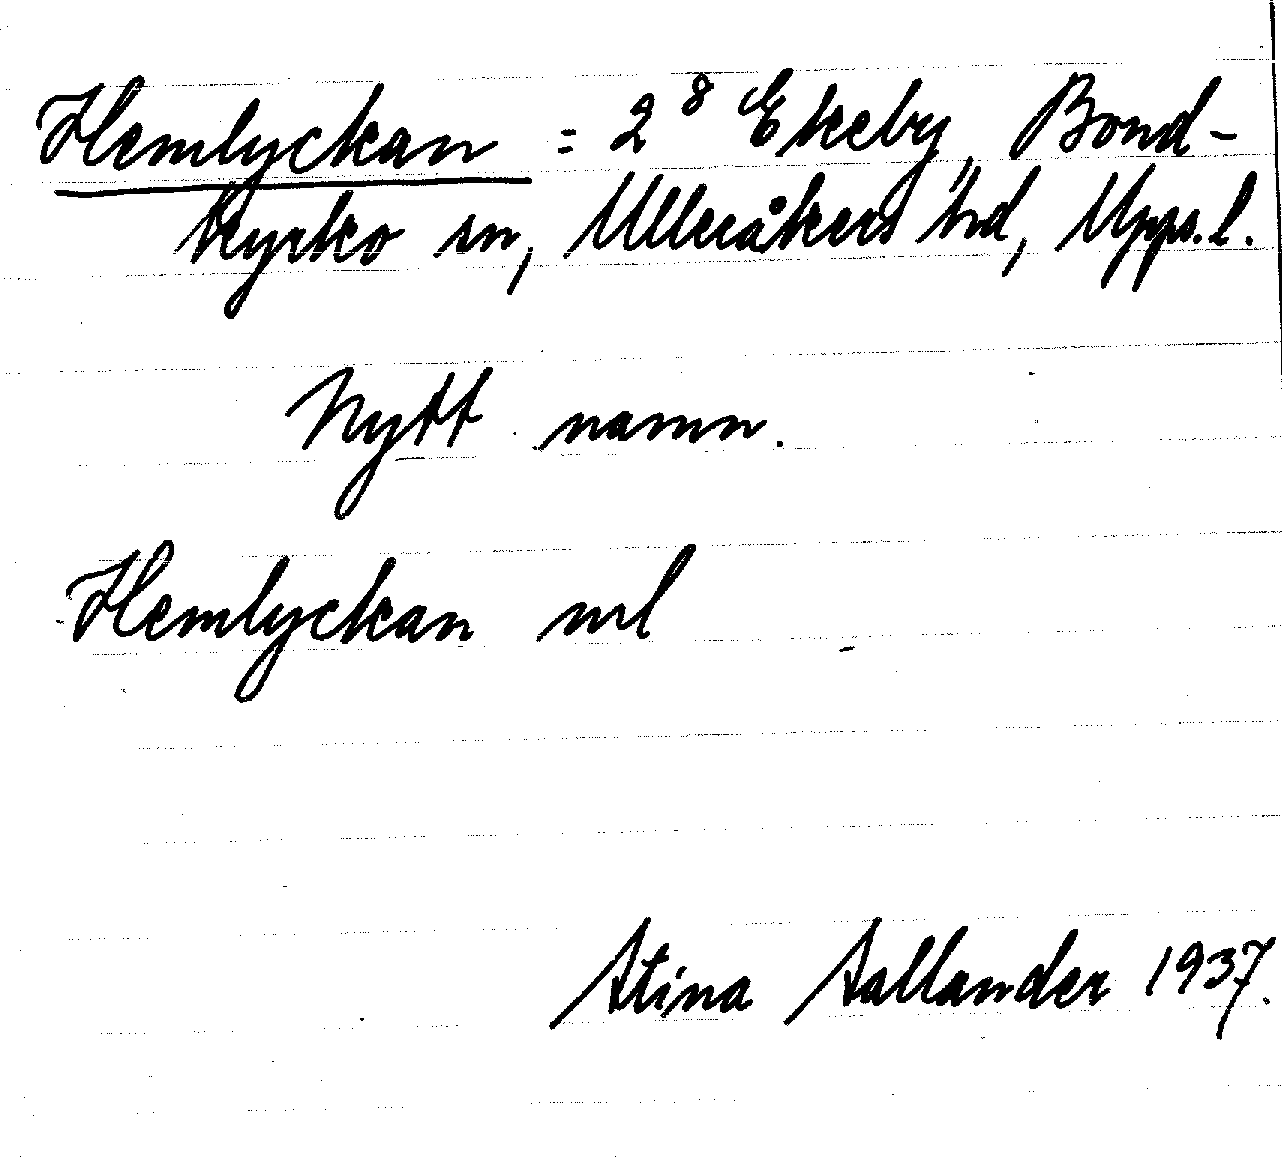 Hemlyckan = 2⁸ Ekeby, Bond-
kyrko sn, Ulleråkers hd, Upps. l.
Nytt namn.
Hemlyckan url
Stina Sallander 1937.